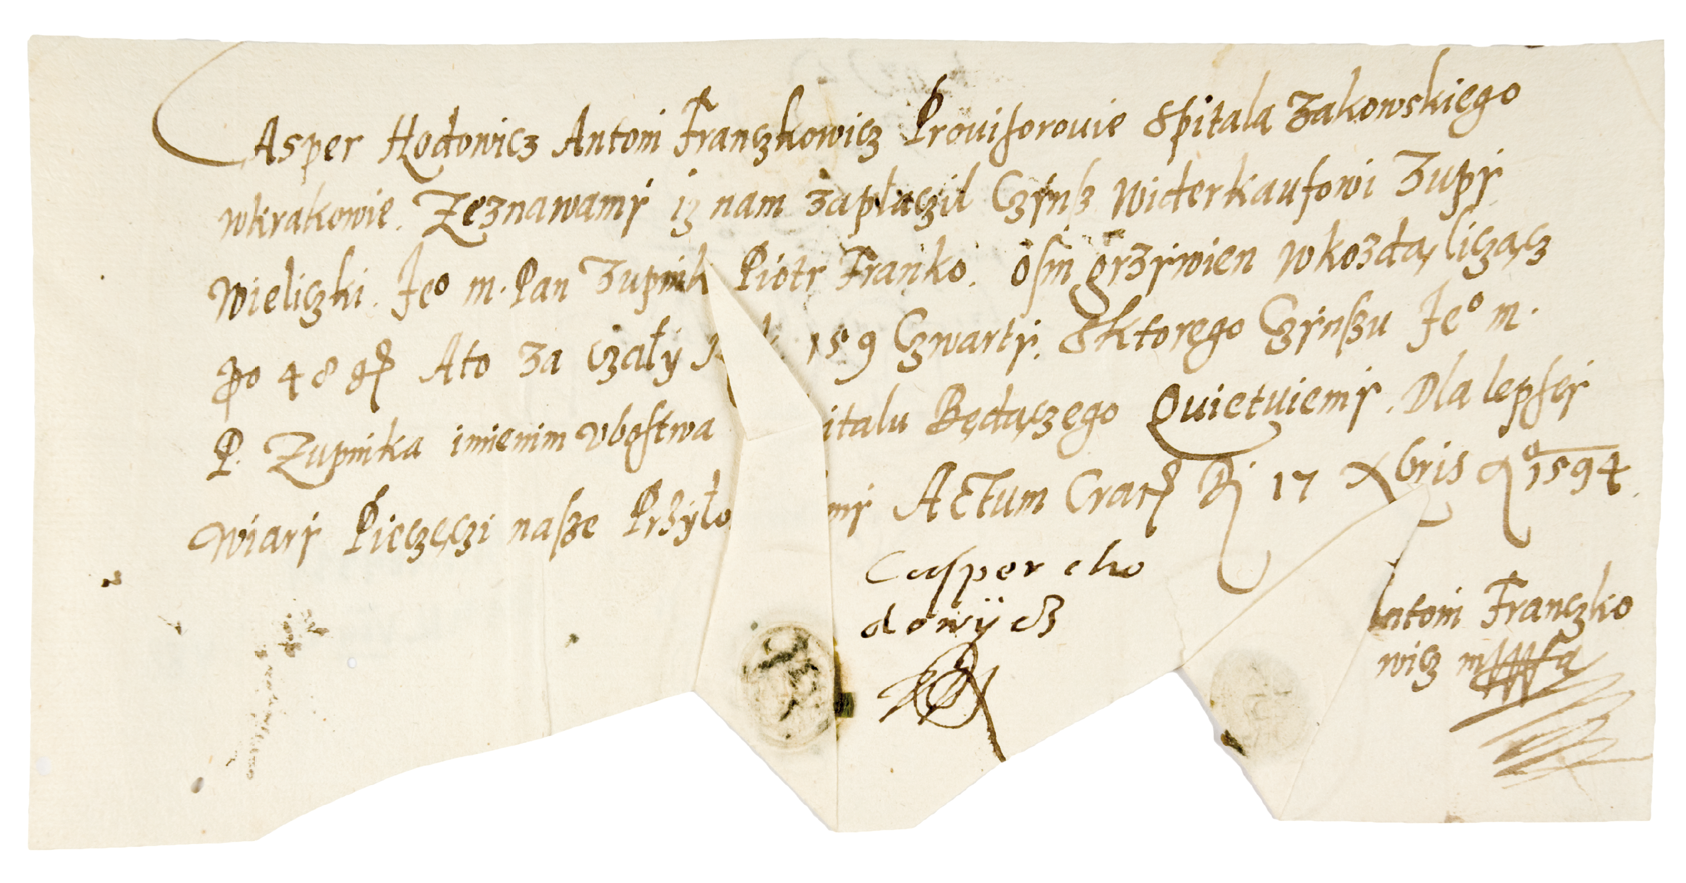 Casper Hodowicz Antoni Franczkowicz Provisorovie Spitala Zakowskiego
wkrakowie. Zeznawamy iz nam zapłaczil Czynß Widerkaufowi Zupy
Wieliczki. Jeo m. Pan Zupnik Piotr Franko. osm grzywien wkozdą licząc
po 48 gr Ato za czały 159 Czwarty. Sktorego Czynßu Jeo m.
P. Zupnika imienim vbostwa italu Będączego Quietuiemy. Dla lepsey
Wiary Pieczęczi nasze Przyło my Actum Crac 17 Xbris ao 1594.
Casper cho
dowÿcz
Antoni Franczko
wicz